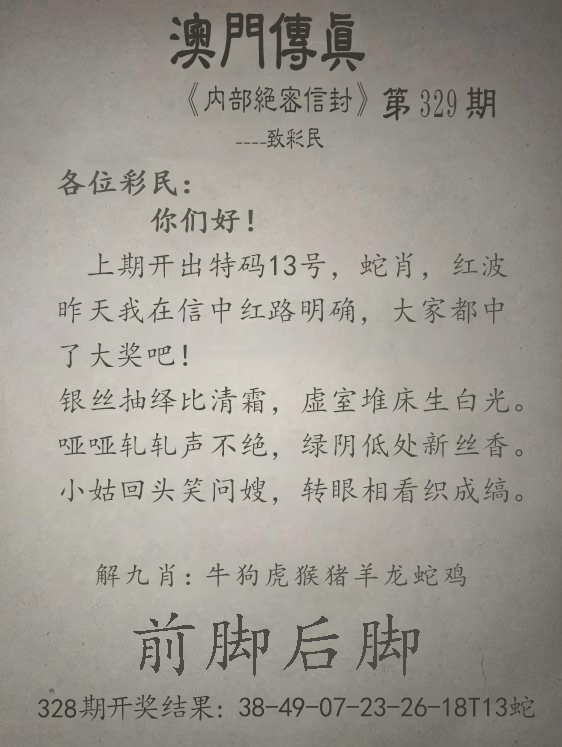 澳門傳真
《内部絕密信封》第329期
----致彩民
各位彩民：
你们好！
上期开出特码13号，蛇肖，红波
昨天我在信中红路明确，大家都中
了大奖吧！
银丝抽绎比清霜，虚室堆床生白光。
哑哑轧轧声不绝，绿阴低处新丝香。
小姑回头笑问嫂，转眼相看织成缟。
解九肖：牛狗虎猴猪羊龙蛇鸡
前脚后脚
328期开奖结果：38-49-07-23-26-18T13蛇